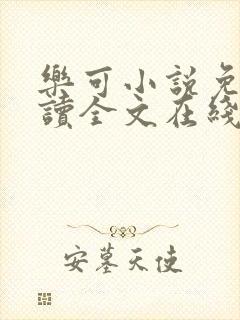 樂可小說免
讀全文在綫
安墓天使